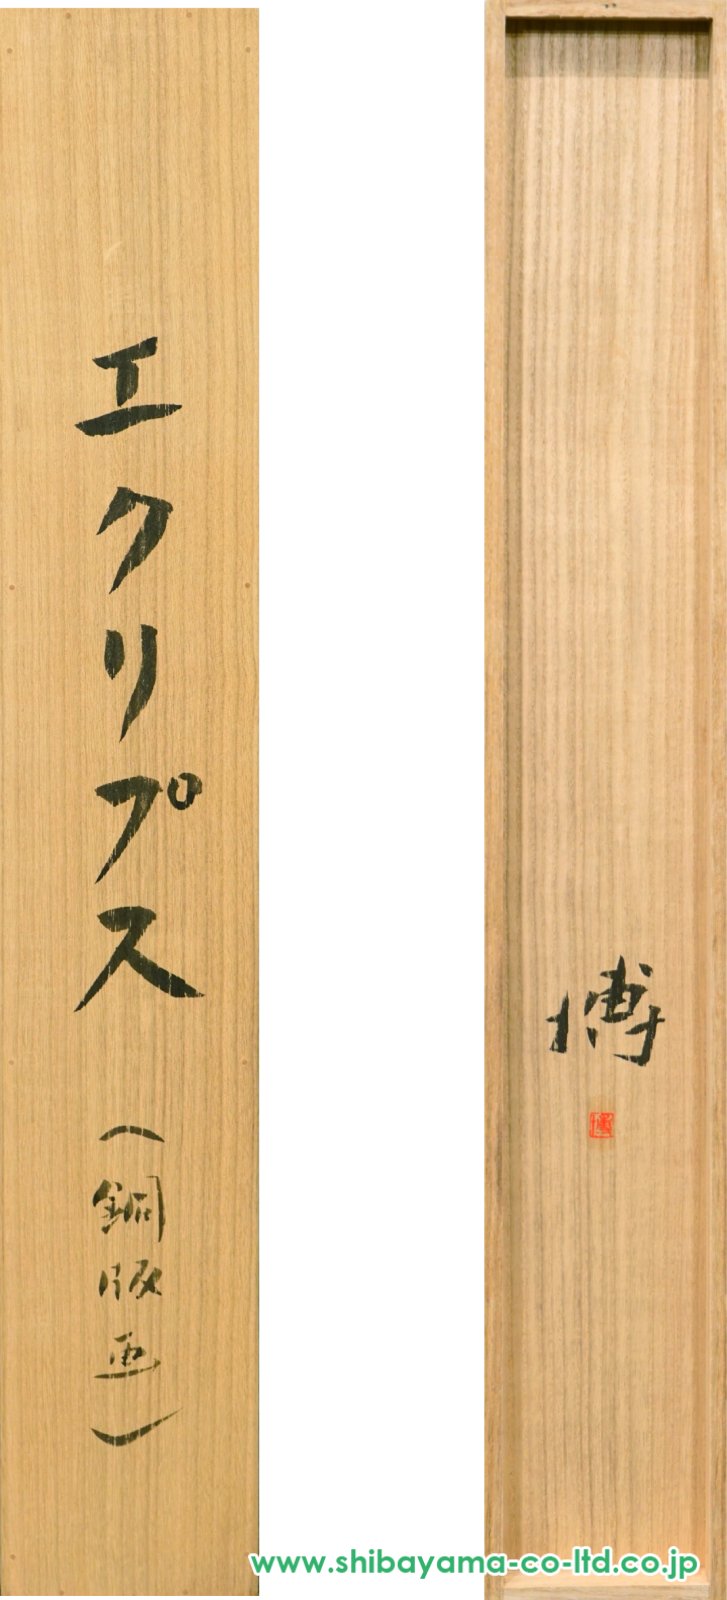 エクリプス
(銅版画)
博
博
www.shibayama-co-ltd.co.jp